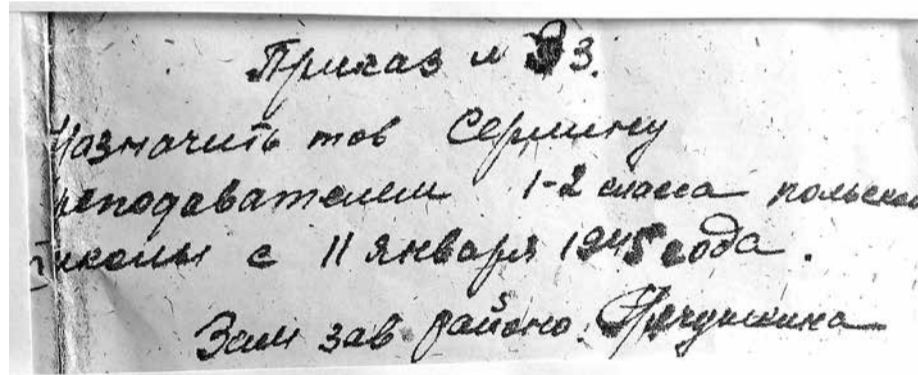 Приказ № 33.
Назначить тов Сермину
преподавателем 1-2 класса польской
школы с 11 января 1945 года.
Зам зав районо.